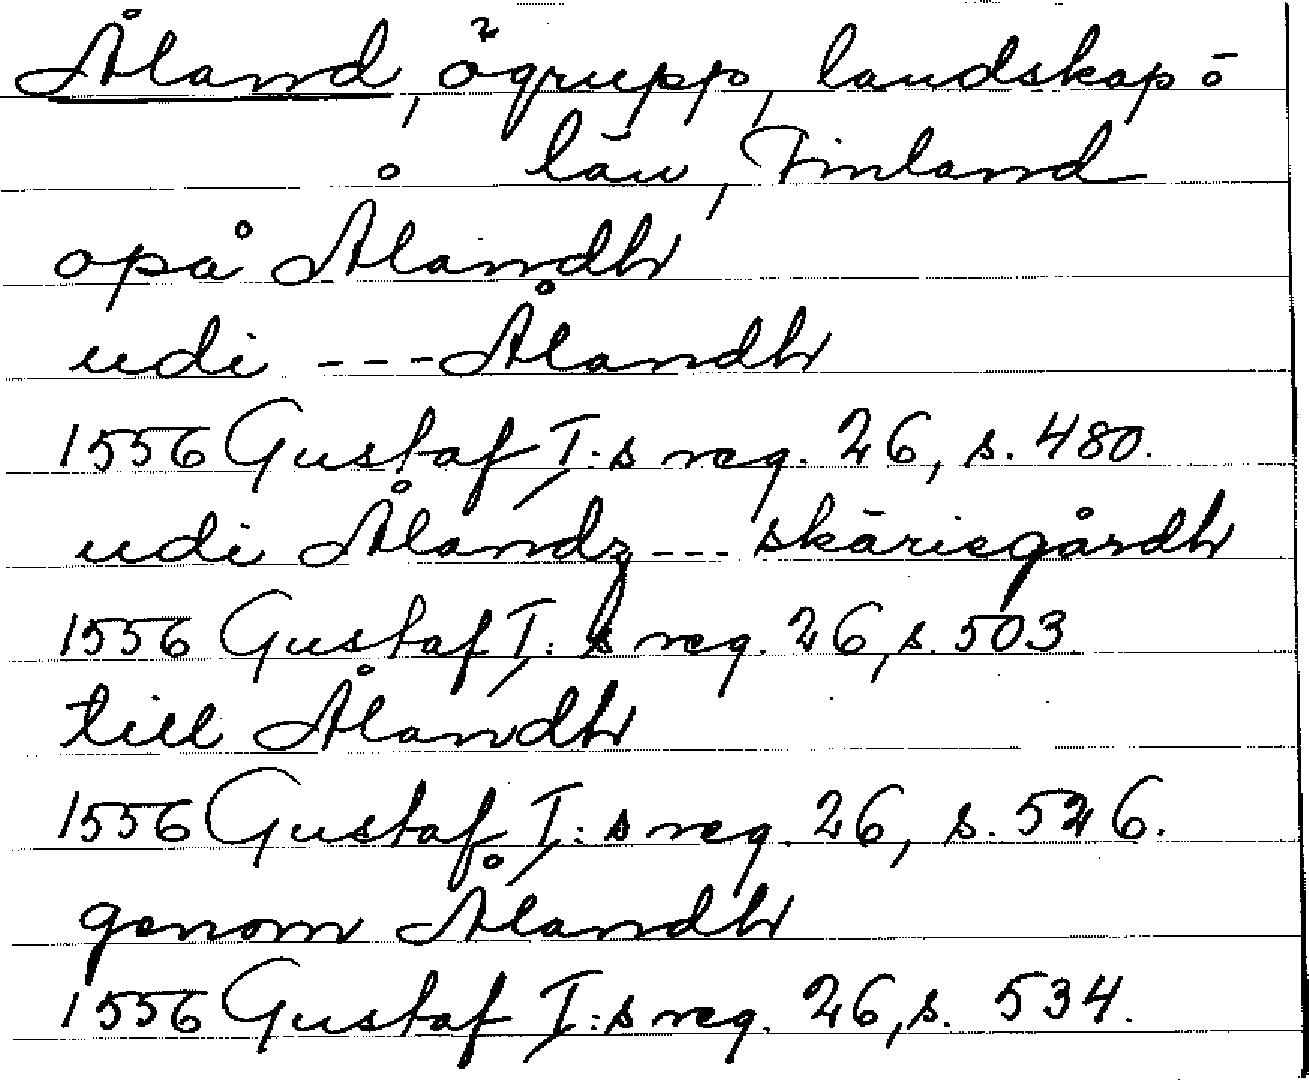 Åland, ögrupp, landskap o
län, Finland
opå Ålandh
udi --- Ålandh
1556 Gustaf I:s reg. 26, s. 480.
udi Ålandz --- skäriegårdh
1556 Gustaf I:s reg. 26, s. 503
till Ålandh
1556 Gustaf I:s reg. 26, s. 526.
genom Ålandh
1556 Gustaf I:s reg. 26, s. 534.